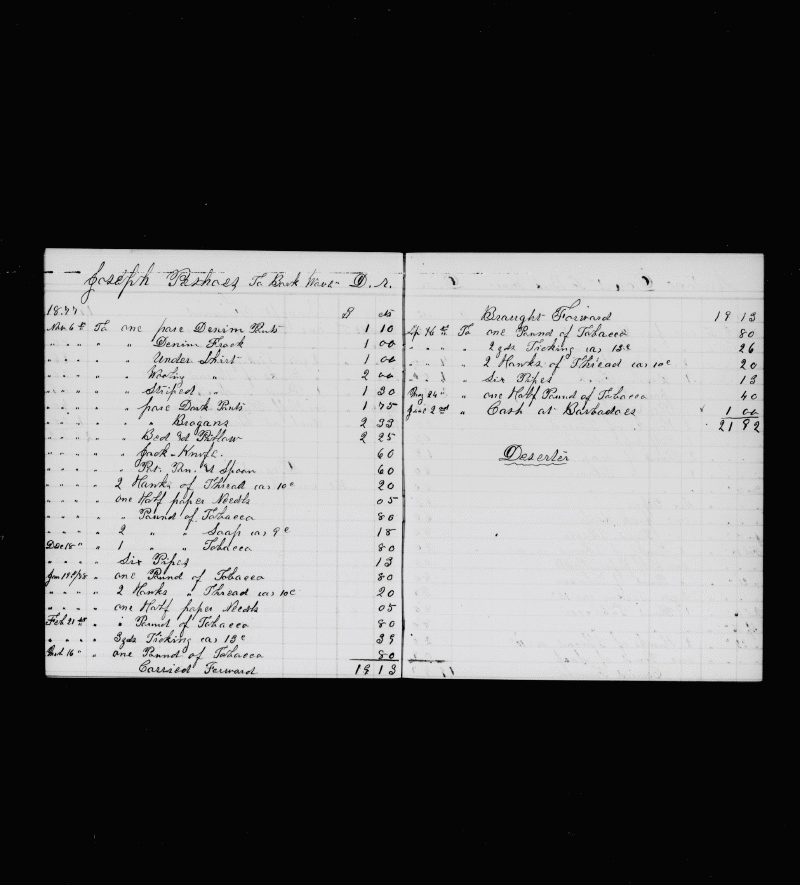 Joseph To Bark Wave D.r.
1877 $ cts
Nov. 6th To one pare Denim Pants 1 10
" " " " " Denim Frock 1 00
" " " " " Under Shirt 1 00
" " " " " " 2 00
" " " " " Striped " 1 30
" " " " " pare Dark Pants 1 75
" " " " " " Brogans 2 33
" " " " " Bed & Pillow 2 25
" " " " " Jack-Knife 60
" " " " " Pot. Pan. & Spoon 60
" " " " 2 Hanks of Thread as 10c 20
" " " " one Half paper Needls 05
" " " " " Pound of Tobacco 80
" " " " 2 " " Soap as 9c 18
Dec 18" " 1 " " Tobacco 80
" " " " Six Pipes 13
Jan 19th/78 " one Pound of Tobacco 80
" " " " 2 Hanks " Thread as 10c 20
" " " " one Half paper Needls 05
Feb 21st " 1 Pound of Tobacco 80
" " " " 3yds Ticking as 13c 39
16" " one Pound of Tobacco 80
Carried Forward 19 13
Braught Forward 19 13
Ap 16th To one Pound of Tobacco 80
" " " " 2yds Ticking as 13c 26
" " " " 2 Hanks of Thread as 10c 20
" " " " Six Pipes 13
May 24" " one Half Pound of Tobacco 40
June 2nd " Cash at Barbadoes 1 00
21 92
Deserter